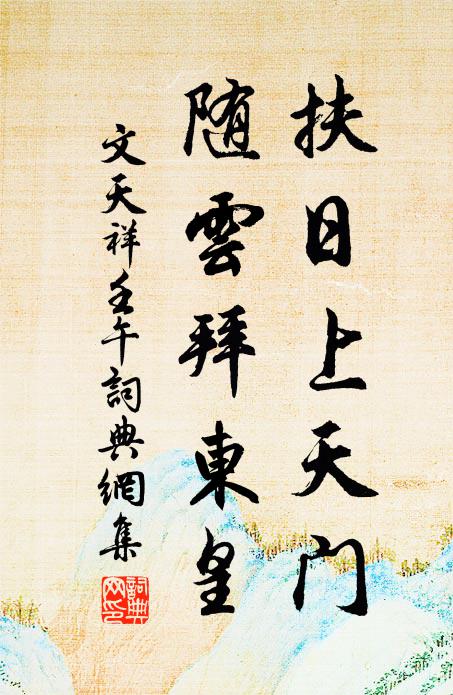 扶日上天門
随雲拜東皇
文天祥壬午詞典網集
詞典網印